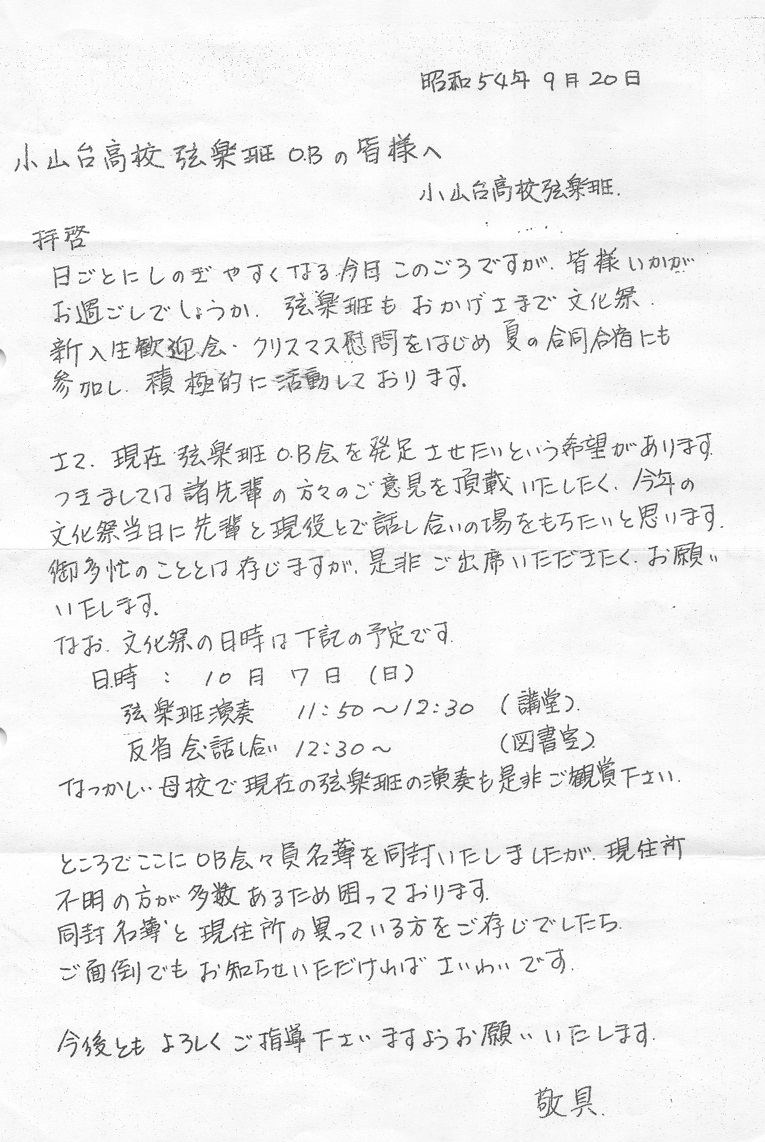 昭和54年 9月20日
小山台高校 弦楽班 O.Bの皆様へ
小山台高校弦楽班.
拝啓
日ごとにしのぎやすくなる今日このごろですが、皆様いかが
お過ごしでしょうか. 弦楽班もおかげさまで文化祭.
新入生歓迎会・クリスマス慰問をはじめ夏の合同合宿にも
参加し、積極的に活動しております.
さて、現在弦楽班O.B会を発足させたいという希望があります.
つきましては諸先輩の方々のご意見を頂載いたしたく、今年の
文化祭当日に先輩と現役とで話し合いの場をもちたいと思います.
御多忙のこととは存じますが、是非ご出席いただきたく、お願い
いたします.
なお、文化祭の日時は下記の予定です.
日時 : 10月 7日 (日)
弦楽班演奏 11:50〜12:30 (講堂).
反省会・話し合い 12:30〜 (図書室).
なつかしい母校で現在の弦楽班の演奏も是非ご観賞下さい.
ところでここにOB会々員名簿を同封いたしましたが、現住所
不明の方が多数あるため困っております.
同封名簿と現住所の異っている方をご存じでしたら、
ご面倒でもお知らせいただければさいわいです.
今後ともよろしくご指導下さいますようお願いいたします.
敬具.